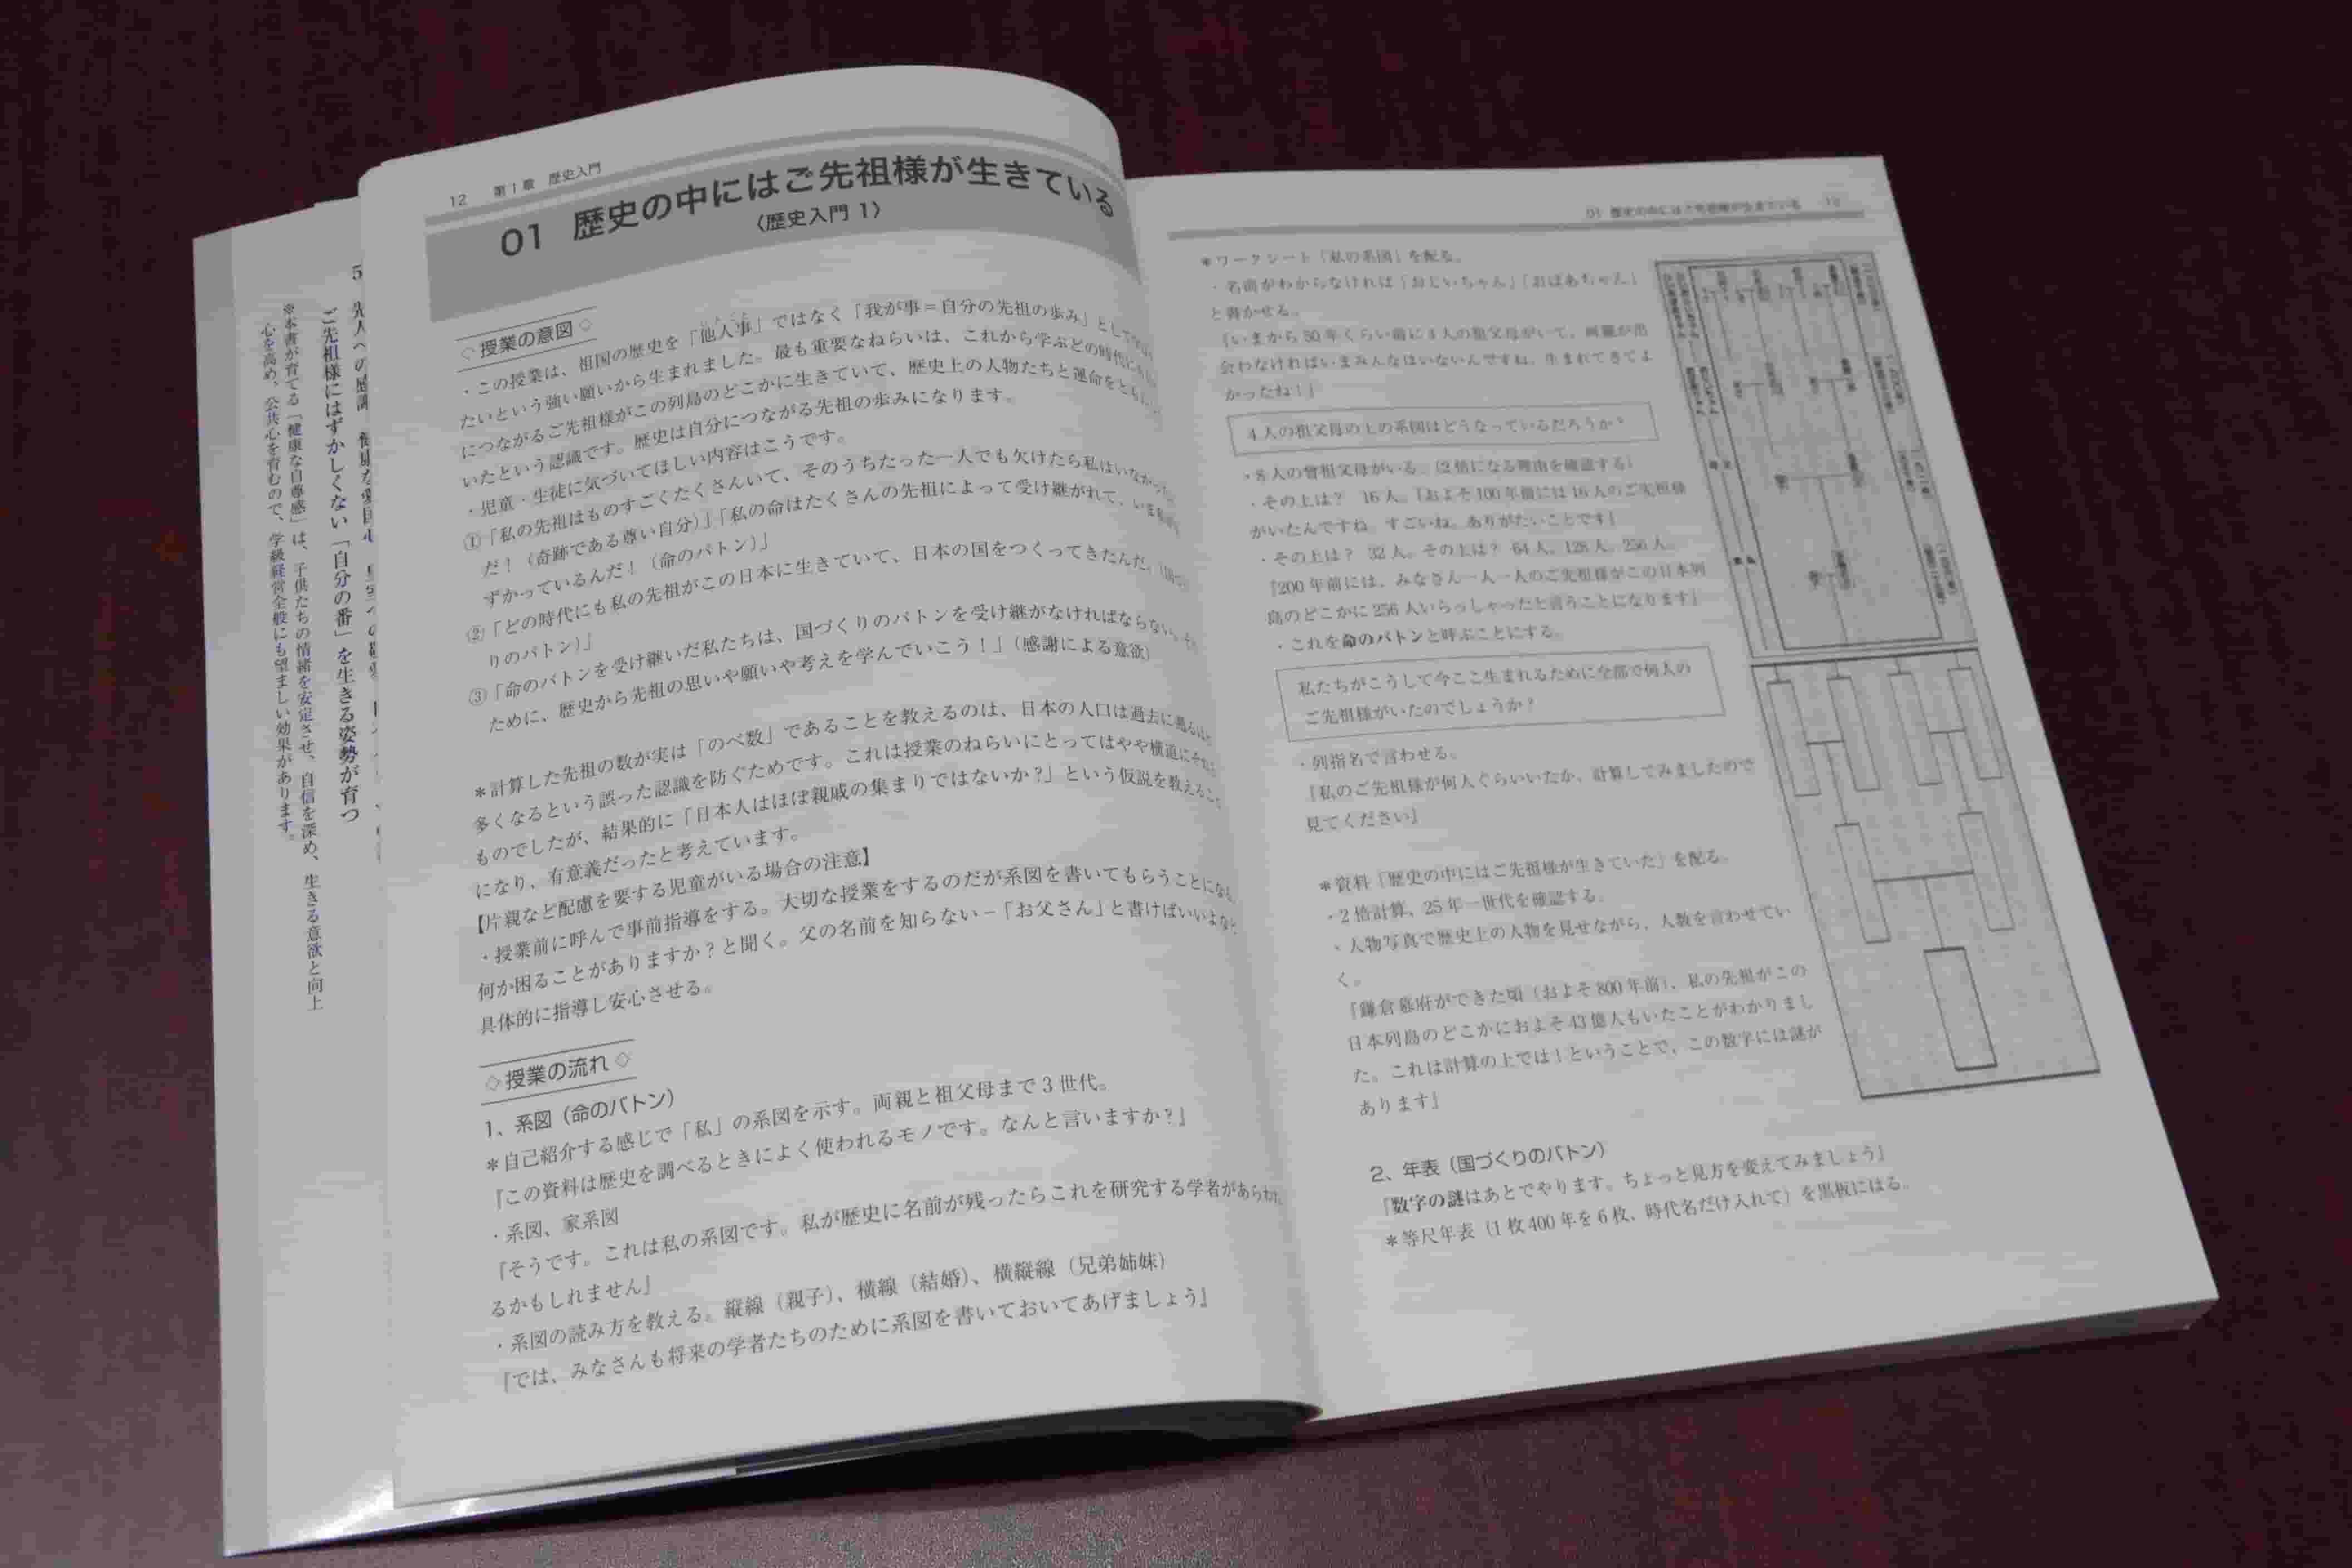 12 第1章 歴史入門
01 歴史の中にはご先祖様が生きている
〈歴史入門 1〉
◇ 授業の意図 ◇
・この授業は、祖国の歴史を「他人事」ではなく「我が事＝自分の先祖の歩み」として
たいという強い願いから生まれました。最も重要なねらいは、これから学ぶどの時代にも
につながるご先祖様がこの列島のどこかに生きていて、歴史上の人物たちと運命をともに
いたという認識です。歴史は自分につながる先祖の歩みになります。
・児童・生徒に気づいてほしい内容はこうです。
①「私の先祖はものすごくたくさんいて、そのうちたった一人でも欠けたら私はいなかった
だ！（奇跡である尊い自分）」「私の命はたくさんの先祖によって受け継がれて、いま
ずかっているんだ！（命のバトン）」
②「どの時代にも私の先祖がこの日本に生きていて、日本の国をつくってきたんだ。
りのバトン）」
③「命のバトンを受け継いだ私たちは、国づくりのバトンを受け継がなければならない。その
ために、歴史から先祖の思いや願いや考えを学んでいこう！」（感謝による意欲）
＊計算した先祖の数が実は「のべ数」であることを教えるのは、日本の人口は過去に遡るほど
多くなるという誤った認識を防ぐためです。これは授業のねらいにとってはやや横道にそれる
ものでしたが、結果的に「日本人はほぼ親戚の集まりではないか？」という仮説を教えること
になり、有意義だったと考えています。
【片親など配慮を要する児童がいる場合の注意】
・授業前に呼んで事前指導をする。大切な授業をするのだが系図を書いてもらうことになる。
何か困ることがありますか？と聞く。父の名前を知らない－「お父さん」と書けばいいよなど、
具体的に指導し安心させる。
◇ 授業の流れ ◇
1、系図（命のバトン）
＊自己紹介する感じで「私」の系図を示す。両親と祖父母まで3世代。
『この資料は歴史を調べるときによく使われるモノです。なんと言いますか？』
・系図、家系図
『そうです。これは私の系図です。私が歴史に名前が残ったらこれを研究する学者があらわれ
るかもしれません』
・系図の読み方を教える。縦線（親子）、横線（結婚）、横縦線（兄弟姉妹）
『では、みなさんも将来の学者たちのために系図を書いておいてあげましょう』
01 歴史の中にはご先祖様が生きている 13
＊ワークシート「私の系図」を配る。
・名前がわからなければ「おじいちゃん」「おばあちゃん」
と書かせる。
『いまから50年くらい前に4人の祖父母がいて、両親が出
会わなければいまみんなはいないんですね。生まれてきてよ
かったね！』
4人の祖父母の上の系図はどうなっているだろうか？
・8人の曾祖父母がいる。（2倍になる理由を確認する）
・その上は？ 16人。『およそ100年前には16人のご先祖様
がいたんですね。すごいね。ありがたいことです』
・その上は？ 32人。その上は？ 64人。128人。256人。
『200年前には、みなさん一人一人のご先祖様がこの日本列
島のどこかに256人いらっしゃったと言うことになります』
・これを命のバトンと呼ぶことにする。
私たちがこうして今ここ生まれるために全部で何人の
ご先祖様がいたのでしょうか？
・列指名で言わせる。
『私のご先祖様が何人ぐらいいたか、計算してみましたので
見てください』
＊資料「歴史の中にはご先祖様が生きていた」を配る。
・2倍計算、25年一世代を確認する。
・人物写真で歴史上の人物を見せながら、人数を言わせてい
く。
『鎌倉幕府ができた頃（およそ800年前）、私の先祖がこの
日本列島のどこかにおよそ43億人もいたことがわかりまし
た。これは計算の上では！ということで、この数字には謎が
あります』
2、年表（国づくりのバトン）
『数字の謎はあとでやります。ちょっと見方を変えてみましょう』
＊等尺年表（1枚400年を6枚、時代名だけ入れて）を黒板にはる。
5
ご先祖様にはずかしくない「自分の番」を生きる姿勢が育つ
※本書が育てる「健康な自尊感」は、子供たちの情緒を安定させ、自信を深め、生きる意欲と向上
心を高め、公共心を育むので、学級経営全般にも望ましい効果があります。